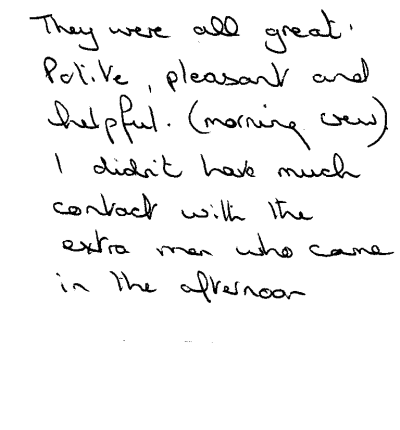 They were all great.
Polite, pleasant and
helpful. (morning crew)
I didn't have much
contact with the
extra men who came
in the afternoon